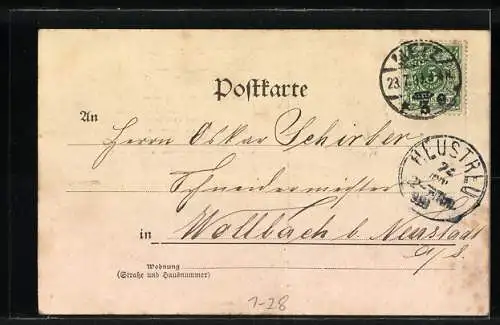 Postkarte
An
Herrn Oskar Schirber
Schneidermeister
in Wollbach b. Neustadt
a/S.
Wohnung
(Straße und Hausnummer)
HEUSTREU
24
1-28